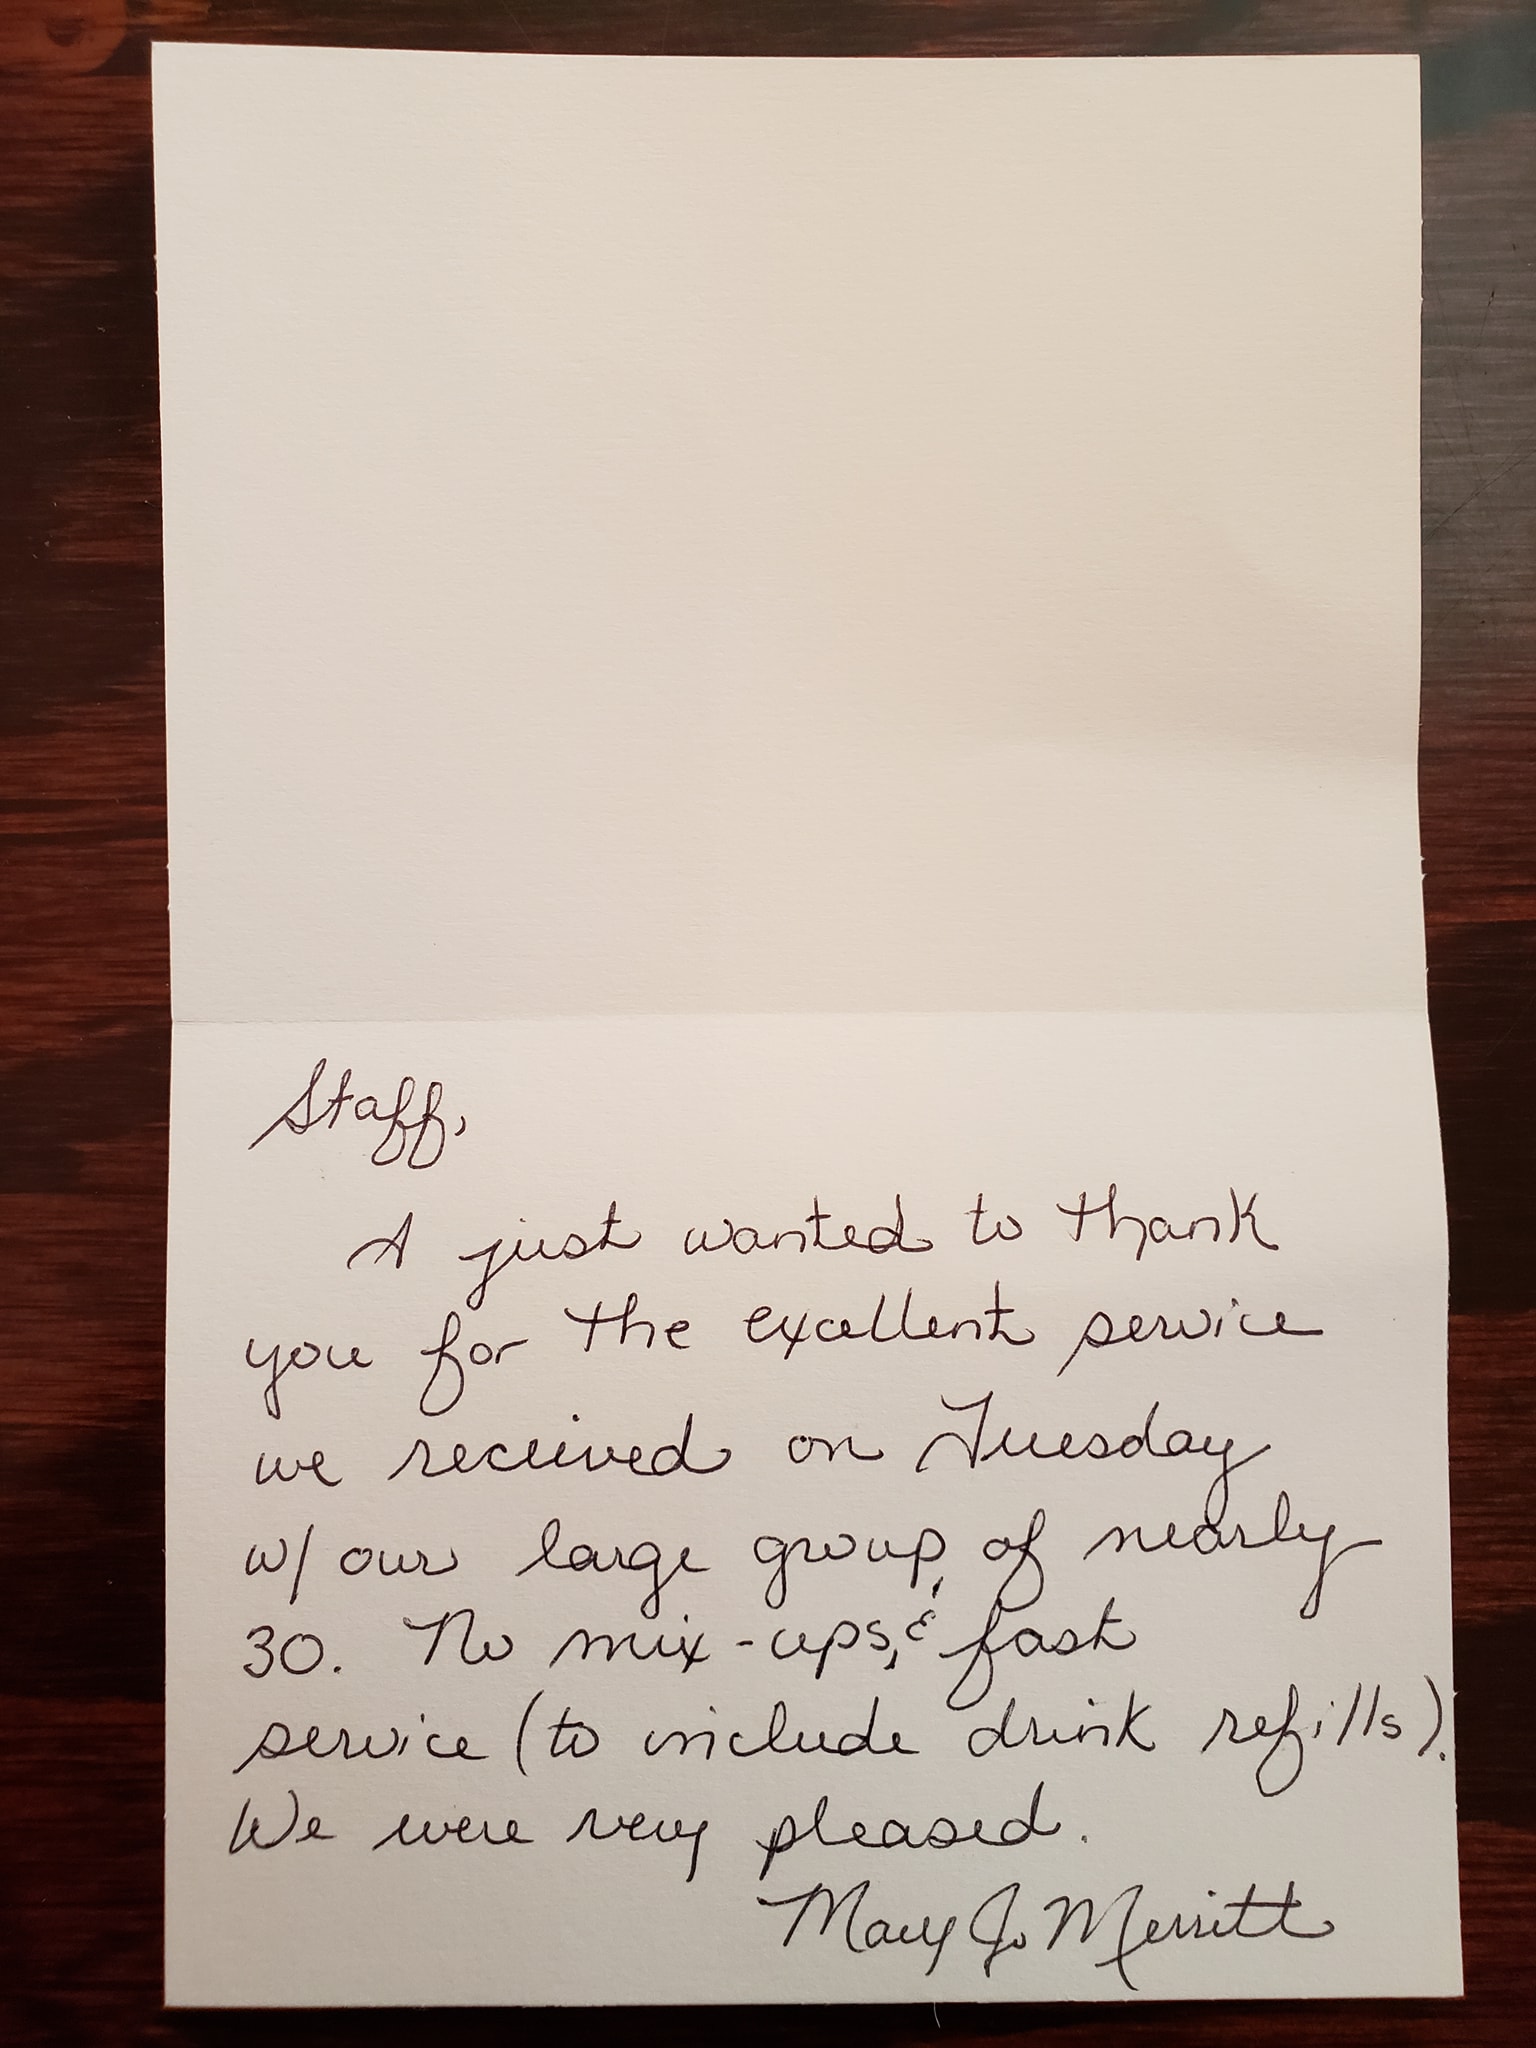 Staff,
I just wanted to thank
you for the excellent service
we received on Tuesday
w/ our large group, of nearly
30. No mix-ups, & fast
service (to include drink refills).
We were very pleased.
Mary Jo Merritt